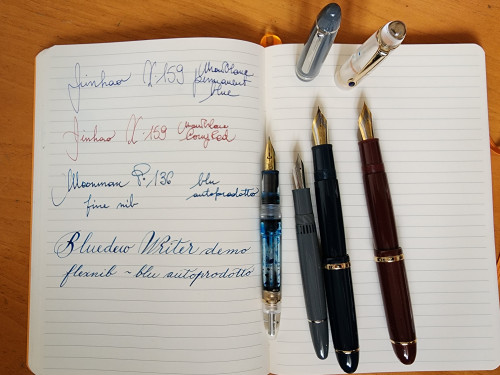 Jinhao X.159 MonBlanc
permanent
blue
Jinhao X.159 MonBlanc
Corn Red
Moonman P.136 blu
autoprodotto
fine nib
Bluedew Writer demo
flexnib ~ blu autoprodotto